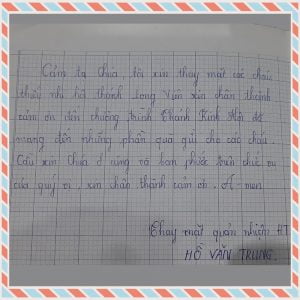 Cảm tạ Chúa, tôi xin thay mặt các cháu
thiếu nhi hội thánh Long Vựa xin chân thành
cảm ơn đến chương trình Thánh Kinh Hè đã
mang đến những phần quà gửi cho các cháu.
Cầu xin Chúa ở cùng và ban phước trên chức vụ
của quý vị, xin chân thành cảm ơn. A-men
Thay mặt quản nhiệm HT
HỒ VĂN TRUNG.